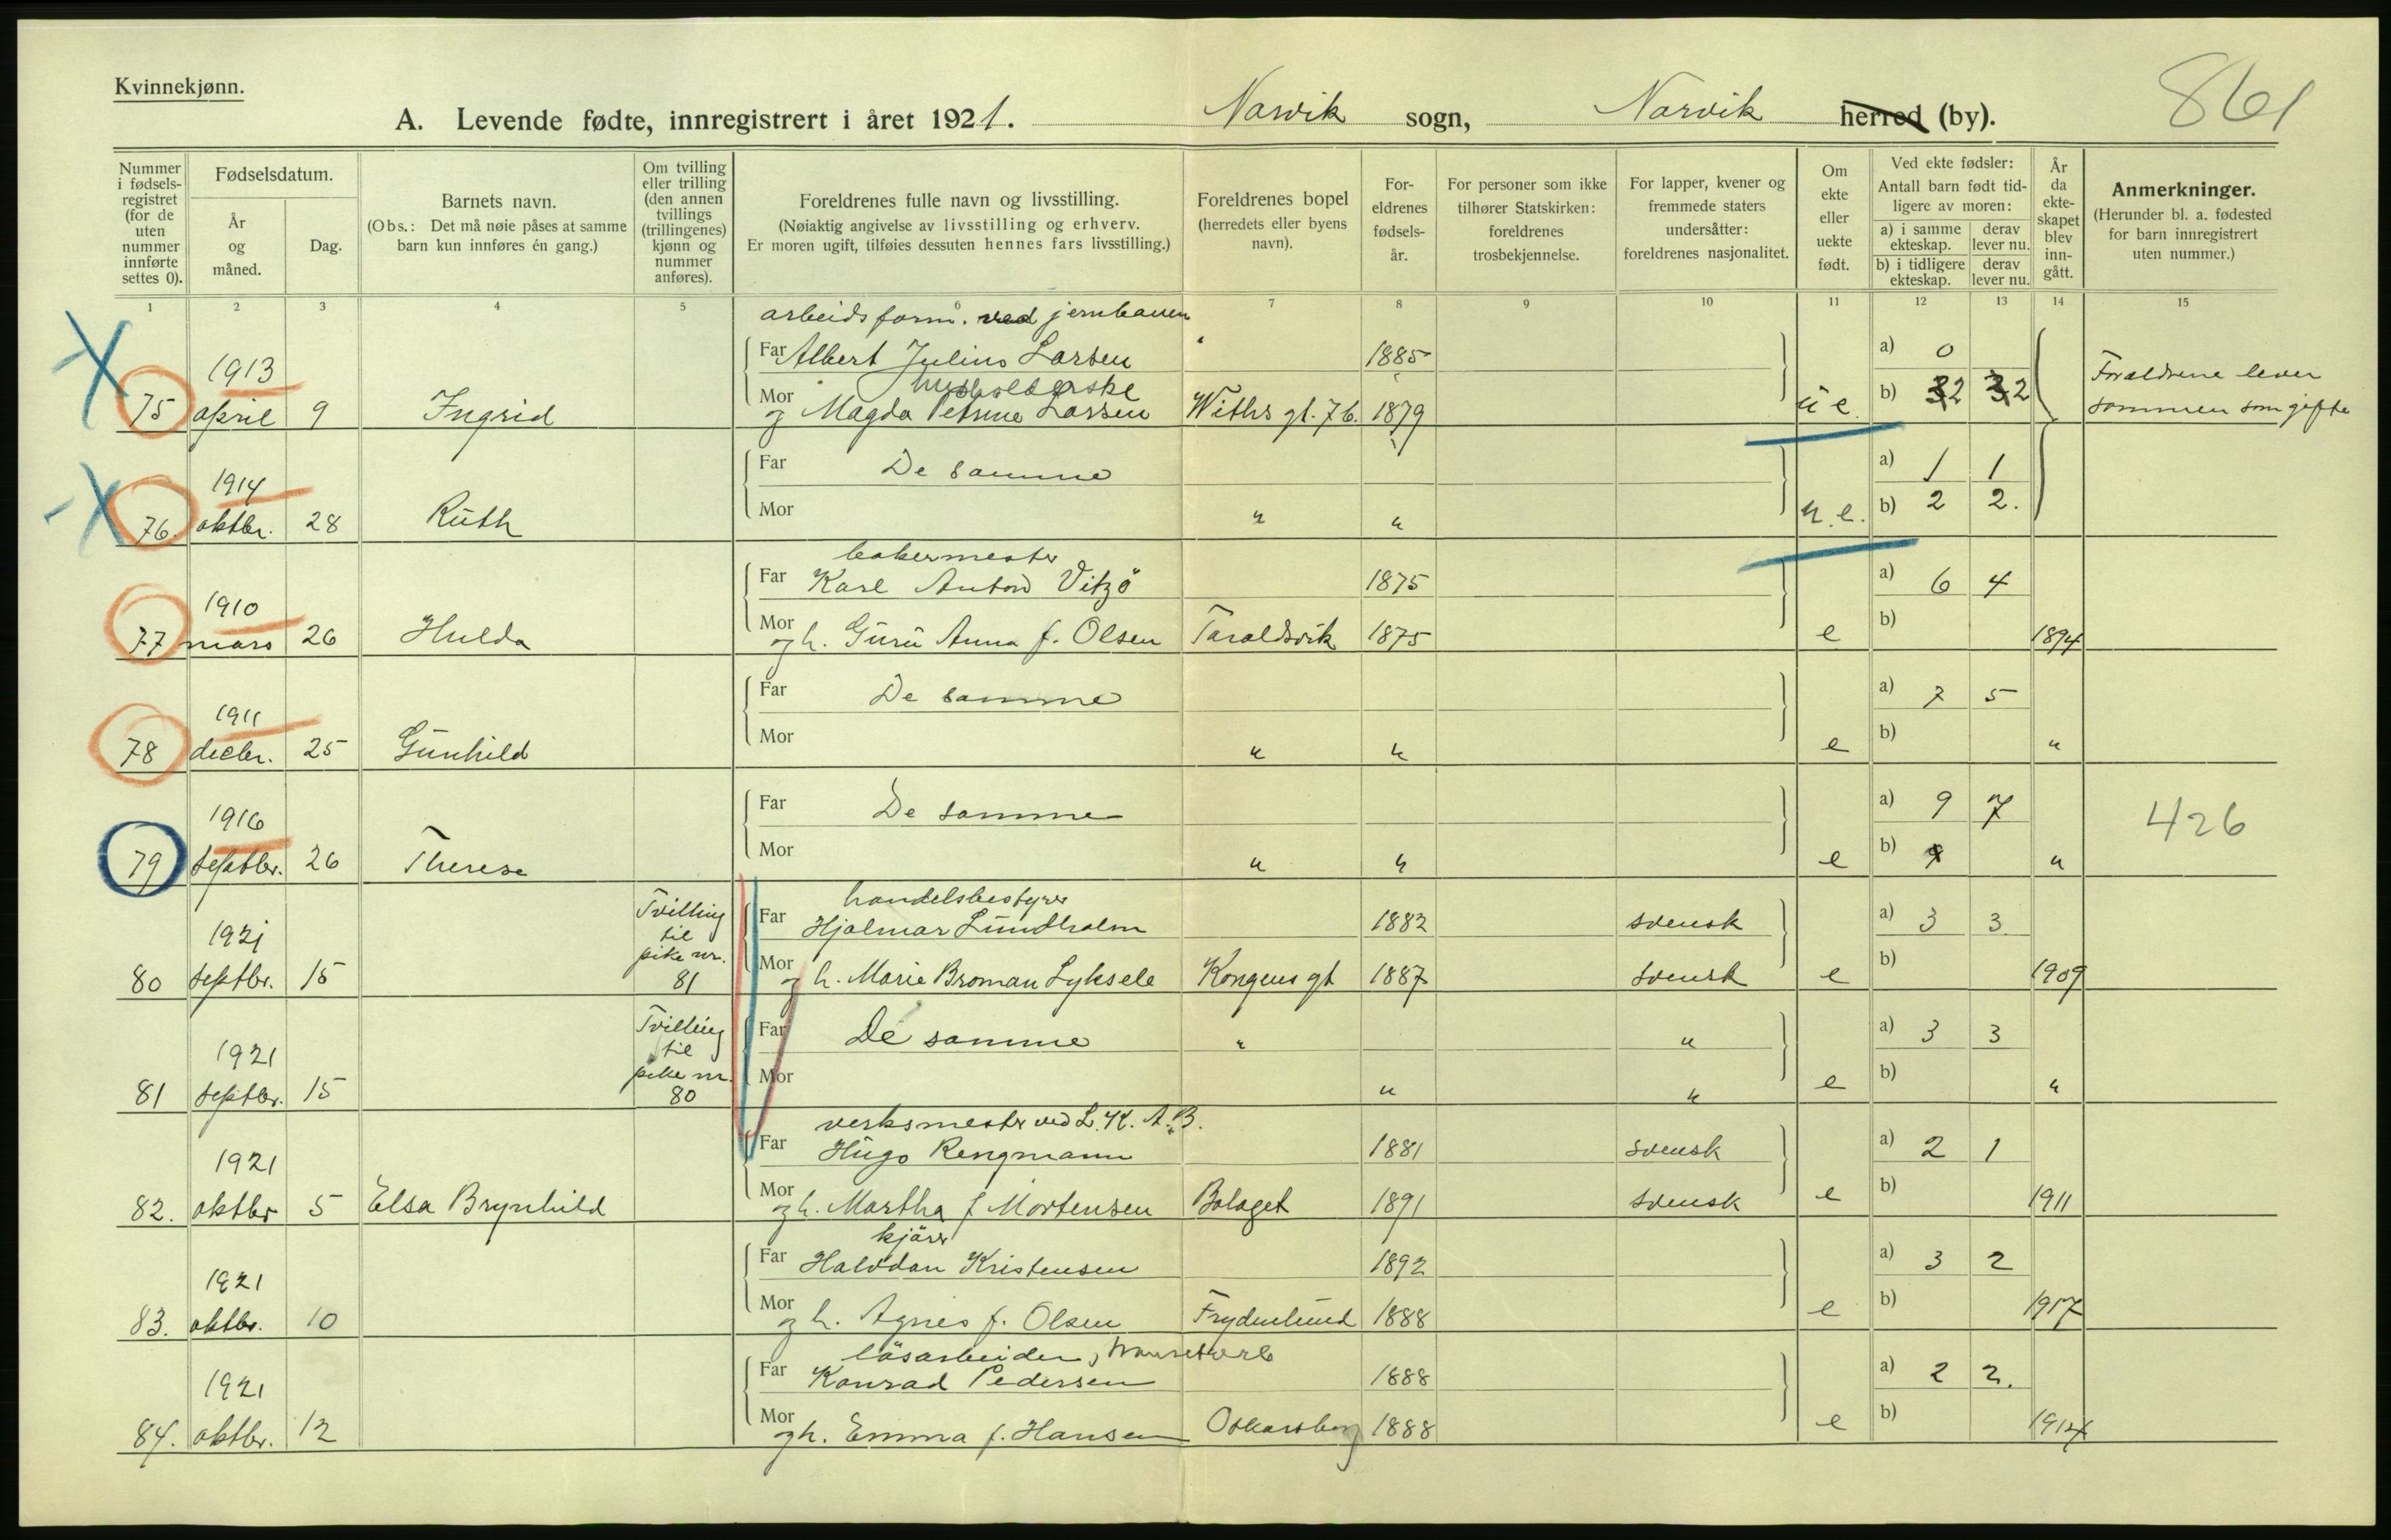 Kvinnekjønn.
A. Levende fødte, innregistrert i året 1921. Narvik sogn, Narvik herred (by).
861
Nummer i fødsels-registret (for de uten nummer innførte settes 0).
Fødselsdatum.
År og måned.
Dag.
Barnets navn.
(Obs.: Det må nøie påses at samme barn kun innføres én gang.)
Om tvilling eller trilling (den annen tvillings (trillingenes) kjønn og nummer anføres).
Foreldrenes fulle navn og livsstilling.
(Nøiaktig angivelse av livsstilling og erhverv.
Er moren ugift, tilføies dessuten hennes fars livsstilling.)
Foreldrenes bopel (herredets eller byens navn).
For-eldrenes fødsels-år.
For personer som ikke tilhører Statskirken: foreldrenes trosbekjennelse.
For lapper, kvener og fremmede staters undersåtter: foreldrenes nasjonalitet.
Om ekte eller uekte født.
Ved ekte fødsler:
Antall barn født tid-ligere av moren:
a) i samme ekteskap.
derav lever nu.
b) i tidligere ekteskap.
derav lever nu.
År da ekte-skapet blev inn-gått.
Anmerkninger.
(Herunder bl. a. fødested for barn innregistrert uten nummer.)
1 2 3 4 5 6 7 8 9 10 11 12 13 14 15
arbeidsform. ved jernbanen
1913 Far Albert Julius Larsen 1885 a) 0
husholderske
75 april 9 Ingrid Mor og Magda Petrine Larsen Withs gt. 76. 1879 u e. b) 2 2
Foreldrene lever
sammen som gifte
1914 Far De samme a) 1 1
76. oktbr. 28 Ruth Mor " " u. e. b) 2 2.
bakermester
1910 Far Karl Anton Vitzö 1875 a) 6 4
77 mars 26 Hulda Mor og h. Guru Anna f. Olsen Taraldsvik 1875 e b) 1894
1911 Far De samme a) 7 5
78 decbr. 25 Gunhild Mor " " e b) "
1916 Far De samme a) 9 7
79 septbr. 26 Therese Mor " " e b) "
426
handelsbestyrer
1921 Tvilling til pike nr. 81 Far Hjalmar Lundholm 1882 svensk a) 3 3
80 septbr. 15 Mor og h. Marie Broman Lyksele Kongens gt 1887 svensk e b) 1909
1921 Tvilling til pike nr. 80 Far De samme " " a) 3 3
81 septbr. 15 Mor " " e b) "
verksmester ved L. K. A. B.
1921 Far Hugo Rengmann 1881 svensk a) 2 1
82. oktbr 5 Elsa Brynhild Mor og h. Martha f Mortensen Bolaget 1891 svensk e b) 1911
kjörer
1921 Far Halvdan Kristensen 1892 a) 3 2
83. oktbr. 10 Mor og h. Agnes f. Olsen Frydenlund 1888 e b) 1917
lösarbeider,
1921 Far Konrad Pedersen 1888 a) 2 2.
84. oktbr. 12 Mor og h. Emma f. Hansen Oskarsborg 1888 e b) 1914